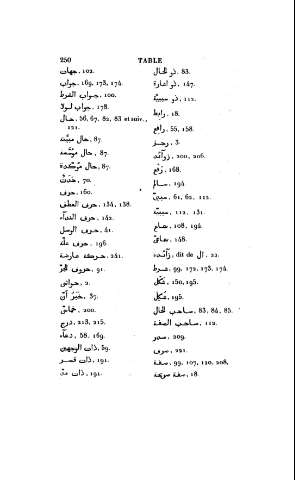 250 TABLE
جهات, 102.
جواب, 169, 173, 174.
جواب الشرط, 100.
جواب لولا, 178.
حال, 56, 67, 82, 83 et suiv., 121.
حال مبيّنة, 87.
حال موطّئة, 87.
حال مؤكّدة, 87.
حدث, 70.
حرف, 160.
حرف العطف, 134, 138.
حرف النداء, 142.
حرف الوصل, 41.
حرف علّة, 196.
حركة عارضة, 241.
حروف الجرّ, 91.
حواشي, 2.
خبر أنّ, 37.
خماسيّ, 200.
درج, 213, 215.
دعاء, 58, 169.
ذات الوجهين, 59.
ذات قسر, 191.
ذات مدّ, 191.
ذو الحال, 83.
ذو اشارة, 147.
ذو مبيّنة, 112.
رابط, 18.
رافع, 55, 158.
رجز, 3.
زوائد, 200, 206.
رفع, 168.
سالم, 194.
مبنى, 61, 62, 112.
مبيّنة, 112, 131.
سماع, 108, 194.
سماعيّ, 148.
زائدة, dit de ال, 22.
شرط, 99, 172, 173, 174.
شكل, 150, 195.
شكل, 195.
صاحب الحال, 83, 84, 85.
صاحب الصفة, 112.
صدر, 209.
صرف, 221.
صفة, 99, 107, 120, 208.
صفة صريحة, 18.